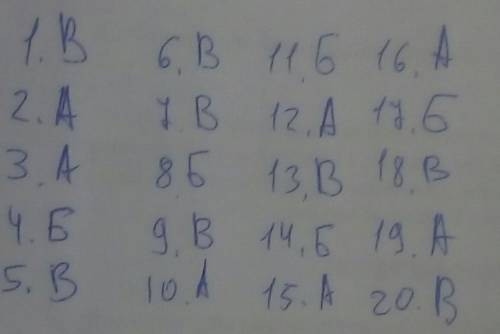 1. В
2. А
3. А
4. Б
5. В
6. В
7. В
8. Б
9. В
10. А
11. Б
12. А
13. В
14. Б
15. А
16. А
17. Б
18. В
19. А
20. В